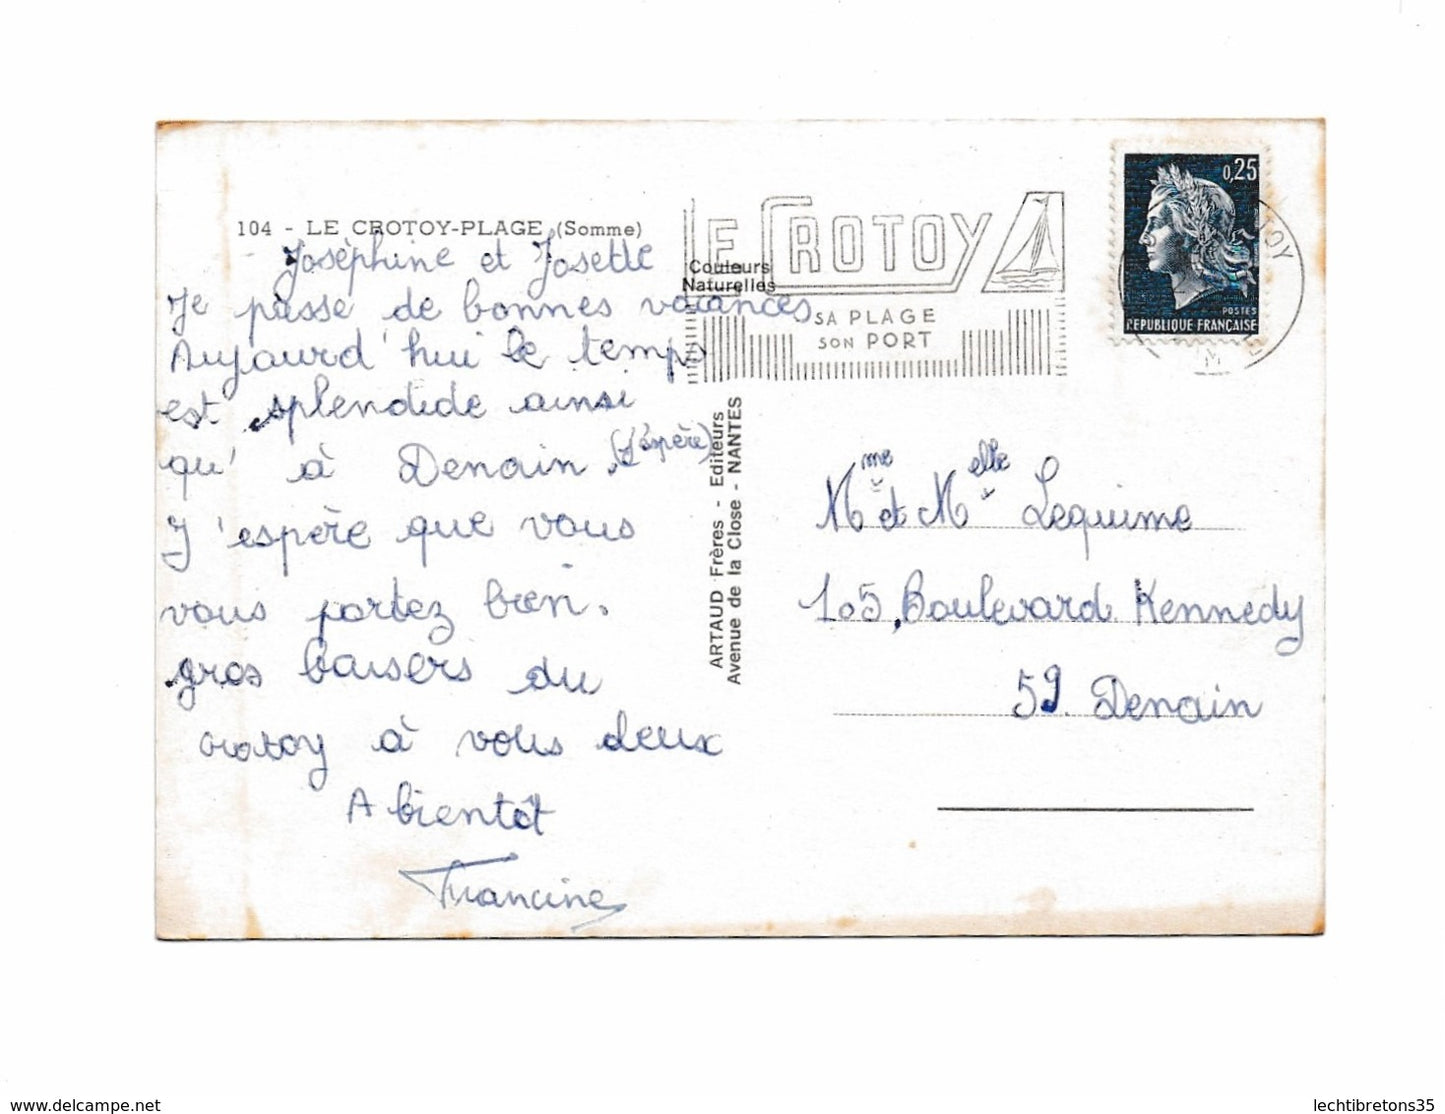 104 - LE CROTOY-PLAGE (Somme)
Josèphine et Josette
Je passe de bonnes vacances
Aujourd'hui le temps
est splendide ainsi
qu' à Denain. (J'espère)
J'espère que vous
vous portez bien.
gros baisers du
crotoy à vous deux
A bientôt
Francine
Couleurs
Naturelles
ARTAUD Frères - Editeurs
Avenue de la Close - NANTES
LE CROTOY
SA PLAGE
SON PORT
0,25
POSTES
REPUBLIQUE FRANÇAISE
Mme et Melle Lequime
105, Boulevard Kennedy
59. Denain
www.delcampe.net
lechtibretons35